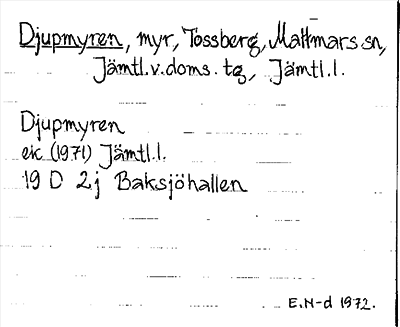 Djupmyren, myr, Tossberg, Mattmars sn,
Jämtl.v.doms. tg, Jämtl.l.
Djupmyren
eK (1971) Jämtl.l.
19 D 2j Baksjöhallen
E.N-d 1972.